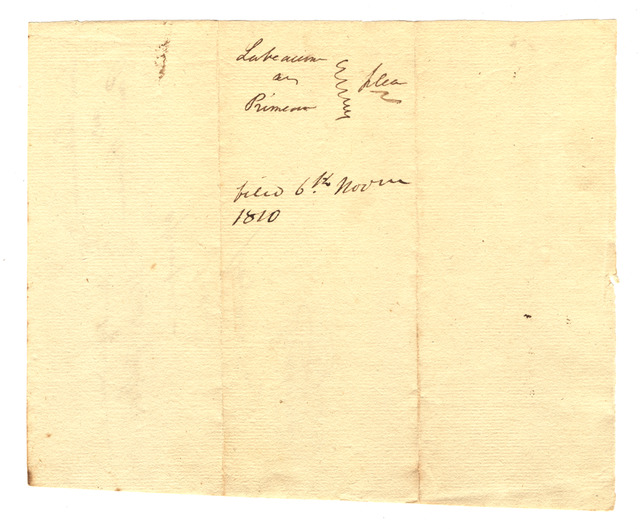 Labeaume
as
Primeau
plea
filed 6th Novm
1810